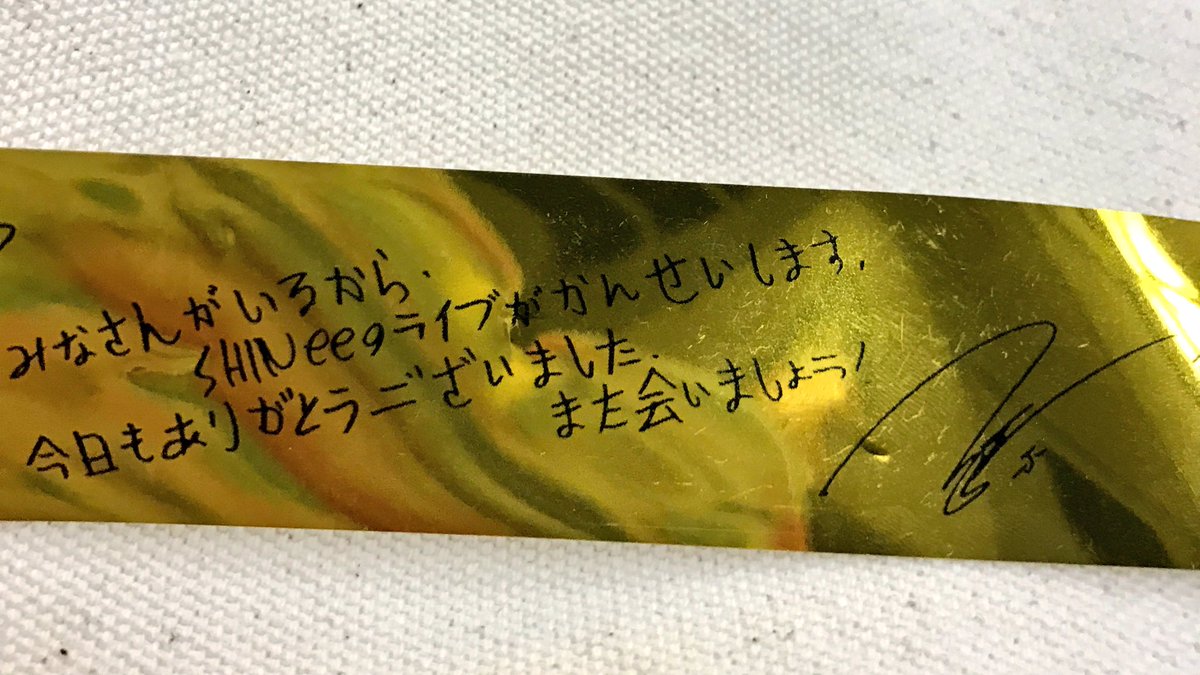 みなさんがいるから、
SHINeeのライブがかんせいします。
今日もありがとうございました。
また会いましょう！